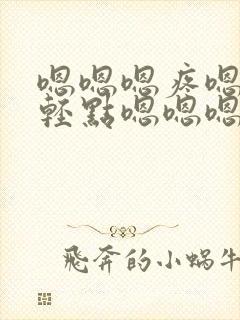 嗯嗯嗯疼嗯
轻點嗯嗯嗯
飛奔的小蝸牛